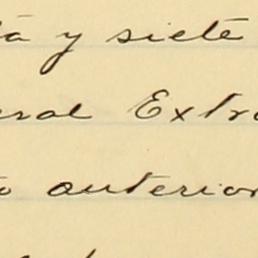 ta y siete
eral Extra
to anterior